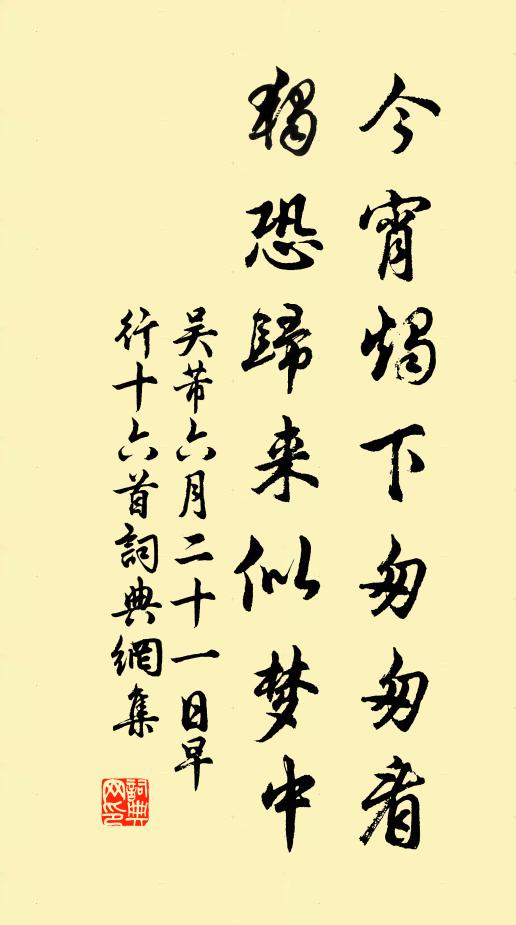 今宵燭下匆匆看
獨恐歸来似梦中
吴芾六月二十一日早
行十六首詞典網集
詞典
网印